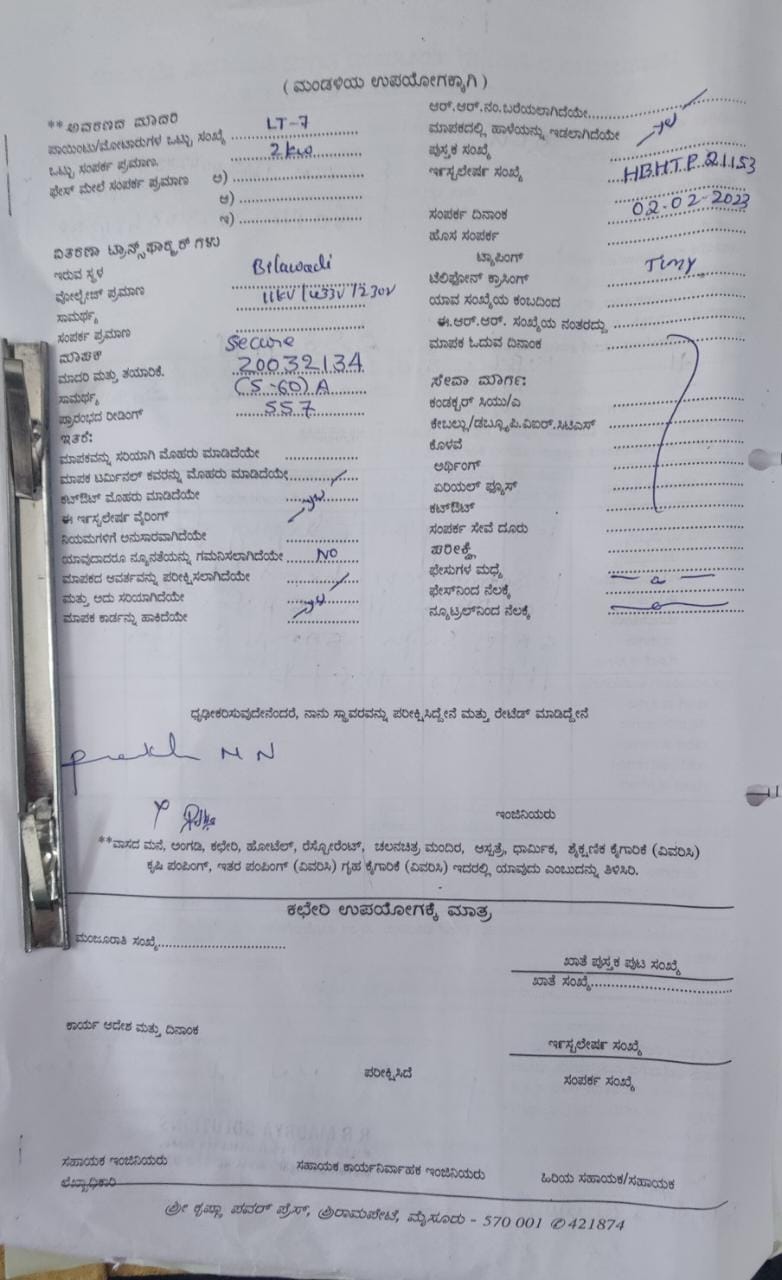 ( ಮಂಡಳಿಯ ಉಪಯೋಗಕ್ಕಾಗಿ )
**ಆವರಣದ ಮಾದರಿ
ಪಾಯಿಂಟು/ಮೋಟಾರುಗಳ ಒಟ್ಟು ಸಂಖ್ಯೆ LT-7
ಒಟ್ಟು ಸಂಪರ್ಕ ಪ್ರಮಾಣ. 2kw
ಫೇಸ್ ಮೇಲೆ ಸಂಪರ್ಕ ಪ್ರಮಾಣ ಅ)
ಆ)
ಇ)
ವಿತರಣಾ ಟ್ರಾನ್ಸ್‌ಫಾರ್ಮರ್ ಗಳು
ಇರುವ ಸ್ಥಳ Belawadi
ವೋಲ್ಟೇಜ್ ಪ್ರಮಾಣ 11kV/433V/230V
ಸಾಮರ್ಥ್ಯ
ಸಂಪರ್ಕ ಪ್ರಮಾಣ
ಮಾಪಕ Secure
ಮಾದರಿ ಮತ್ತು ತಯಾರಿಕೆ. 20032134
ಸಾಮರ್ಥ್ಯ (5-60)A
ಪ್ರಾರಂಭದ ರೀಡಿಂಗ್ 557
ಇತರೆ:
ಮಾಪಕವನ್ನು ಸರಿಯಾಗಿ ಮೊಹರು ಮಾಡಿದೆಯೇ
ಮಾಪಕ ಟರ್ಮಿನಲ್ ಕವರನ್ನು ಮೊಹರು ಮಾಡಿದೆಯೇ
ಕಟ್‌ಔಟ್ ಮೊಹರು ಮಾಡಿದೆಯೇ
ಈ ಇನ್ಸ್ಟಲೇಷನ್ ವೈರಿಂಗ್
ನಿಯಮಗಳಿಗೆ ಅನುಸಾರವಾಗಿದೆಯೇ
ಯಾವುದಾದರೂ ನ್ಯೂನತೆಯನ್ನು ಗಮನಿಸಲಾಗಿದೆಯೇ NO
ಮಾಪಕದ ಆವರ್ತವನ್ನು ಪರೀಕ್ಷಿಸಲಾಗಿದೆಯೇ
ಮತ್ತು ಅದು ಸರಿಯಾಗಿದೆಯೇ
ಮಾಪಕ ಕಾರ್ಡನ್ನು ಹಾಕಿದೆಯೇ
ಆರ್.ಆರ್.ನಂ.ಬರೆಯಲಾಗಿದೆಯೇ
ಮಾಪಕದಲ್ಲಿ ಹಾಳೆಯನ್ನು ಇಡಲಾಗಿದೆಯೇ
ಪುಸ್ತಕ ಸಂಖ್ಯೆ
ಇನ್ಸ್ಟಲೇಷನ್ ಸಂಖ್ಯೆ HBHTP 21153
ಸಂಪರ್ಕ ದಿನಾಂಕ 02-02-2023
ಹೊಸ ಸಂಪರ್ಕ
ಟ್ಯಾಪಿಂಗ್
ಟೆಲಿಫೋನ್ ಕ್ರಾಸಿಂಗ್
ಯಾವ ಸಂಖ್ಯೆಯ ಕಂಬದಿಂದ
ಈ.ಆರ್.ಆರ್. ಸಂಖ್ಯೆಯ ನಂತರದ್ದು
ಮಾಪಕ ಓದುವ ದಿನಾಂಕ
ಸೇವಾ ಮಾರ್ಗ:
ಕಂಡಕ್ಟರ್ ಸಿಯು/ಎ
ಕೇಬಲ್ಲು/ಡಬ್ಲ್ಯೂಪಿ.ವಿಐರ್.ಸಿಟಿಎಸ್
ಕೊಳವೆ
ಅರ್ಥಿಂಗ್
ಏರಿಯಲ್ ಫ್ಯೂಸ್
ಕಟ್‌ಔಟ್
ಸಂಪರ್ಕ ಸೇವೆ ದೂರು
ಪರೀಕ್ಷೆ
ಫೇಸುಗಳ ಮಧ್ಯೆ
ಫೇಸ್‌ನಿಂದ ನೆಲಕ್ಕೆ
ನ್ಯೂಟ್ರಲ್‌ನಿಂದ ನೆಲಕ್ಕೆ
ಧೃಢೀಕರಿಸುವುದೇನೆಂದರೆ, ನಾನು ಸ್ಥಾವರವನ್ನು ಪರೀಕ್ಷಿಸಿದ್ದೇನೆ ಮತ್ತು ರೇಟೆಡ್ ಮಾಡಿದ್ದೇನೆ
ಇಂಜಿನಿಯರು
**ವಾಸದ ಮನೆ, ಅಂಗಡಿ, ಕಛೇರಿ, ಹೋಟೆಲ್, ರೆಸ್ಟೋರೆಂಟ್, ಚಲನಚಿತ್ರ ಮಂದಿರ, ಆಸ್ಪತ್ರೆ, ಧಾರ್ಮಿಕ, ಶೈಕ್ಷಣಿಕ ಕೈಗಾರಿಕೆ (ವಿವರಿಸಿ)
ಕೃಷಿ ಪಂಪಿಂಗ್, ಇತರ ಪಂಪಿಂಗ್ (ವಿವರಿಸಿ) ಗೃಹ ಕೈಗಾರಿಕೆ (ವಿವರಿಸಿ) ಇದರಲ್ಲಿ ಯಾವುದು ಎಂಬುದನ್ನು ತಿಳಿಸಿರಿ.
ಕಛೇರಿ ಉಪಯೋಗಕ್ಕೆ ಮಾತ್ರ
ಮಂಜೂರಾತಿ ಸಂಖ್ಯೆ
ಖಾತೆ ಪುಸ್ತಕ ಪುಟ ಸಂಖ್ಯೆ
ಖಾತೆ ಸಂಖ್ಯೆ
ಕಾರ್ಯ ಆದೇಶ ಮತ್ತು ದಿನಾಂಕ
ಇನ್ಸ್ಟಲೇಷನ್ ಸಂಖ್ಯೆ
ಪರೀಕ್ಷಿಸಿದೆ
ಸಂಪರ್ಕ ಸಂಖ್ಯೆ
ಸಹಾಯಕ ಇಂಜಿನಿಯರು
ಸಹಾಯಕ ಕಾರ್ಯನಿರ್ವಾಹಕ ಇಂಜಿನಿಯರು
ಹಿರಿಯ ಸಹಾಯಕ/ಸಹಾಯಕ
ಲೆಖ್ಖಾಧಿಕಾರಿ
ಶ್ರೀ ಕೃಷ್ಣಾ ಪವರ್ ಪ್ರೆಸ್, ಶ್ರೀರಾಮಪೇಟೆ, ಮೈಸೂರು - 570 001 ✆ 421874